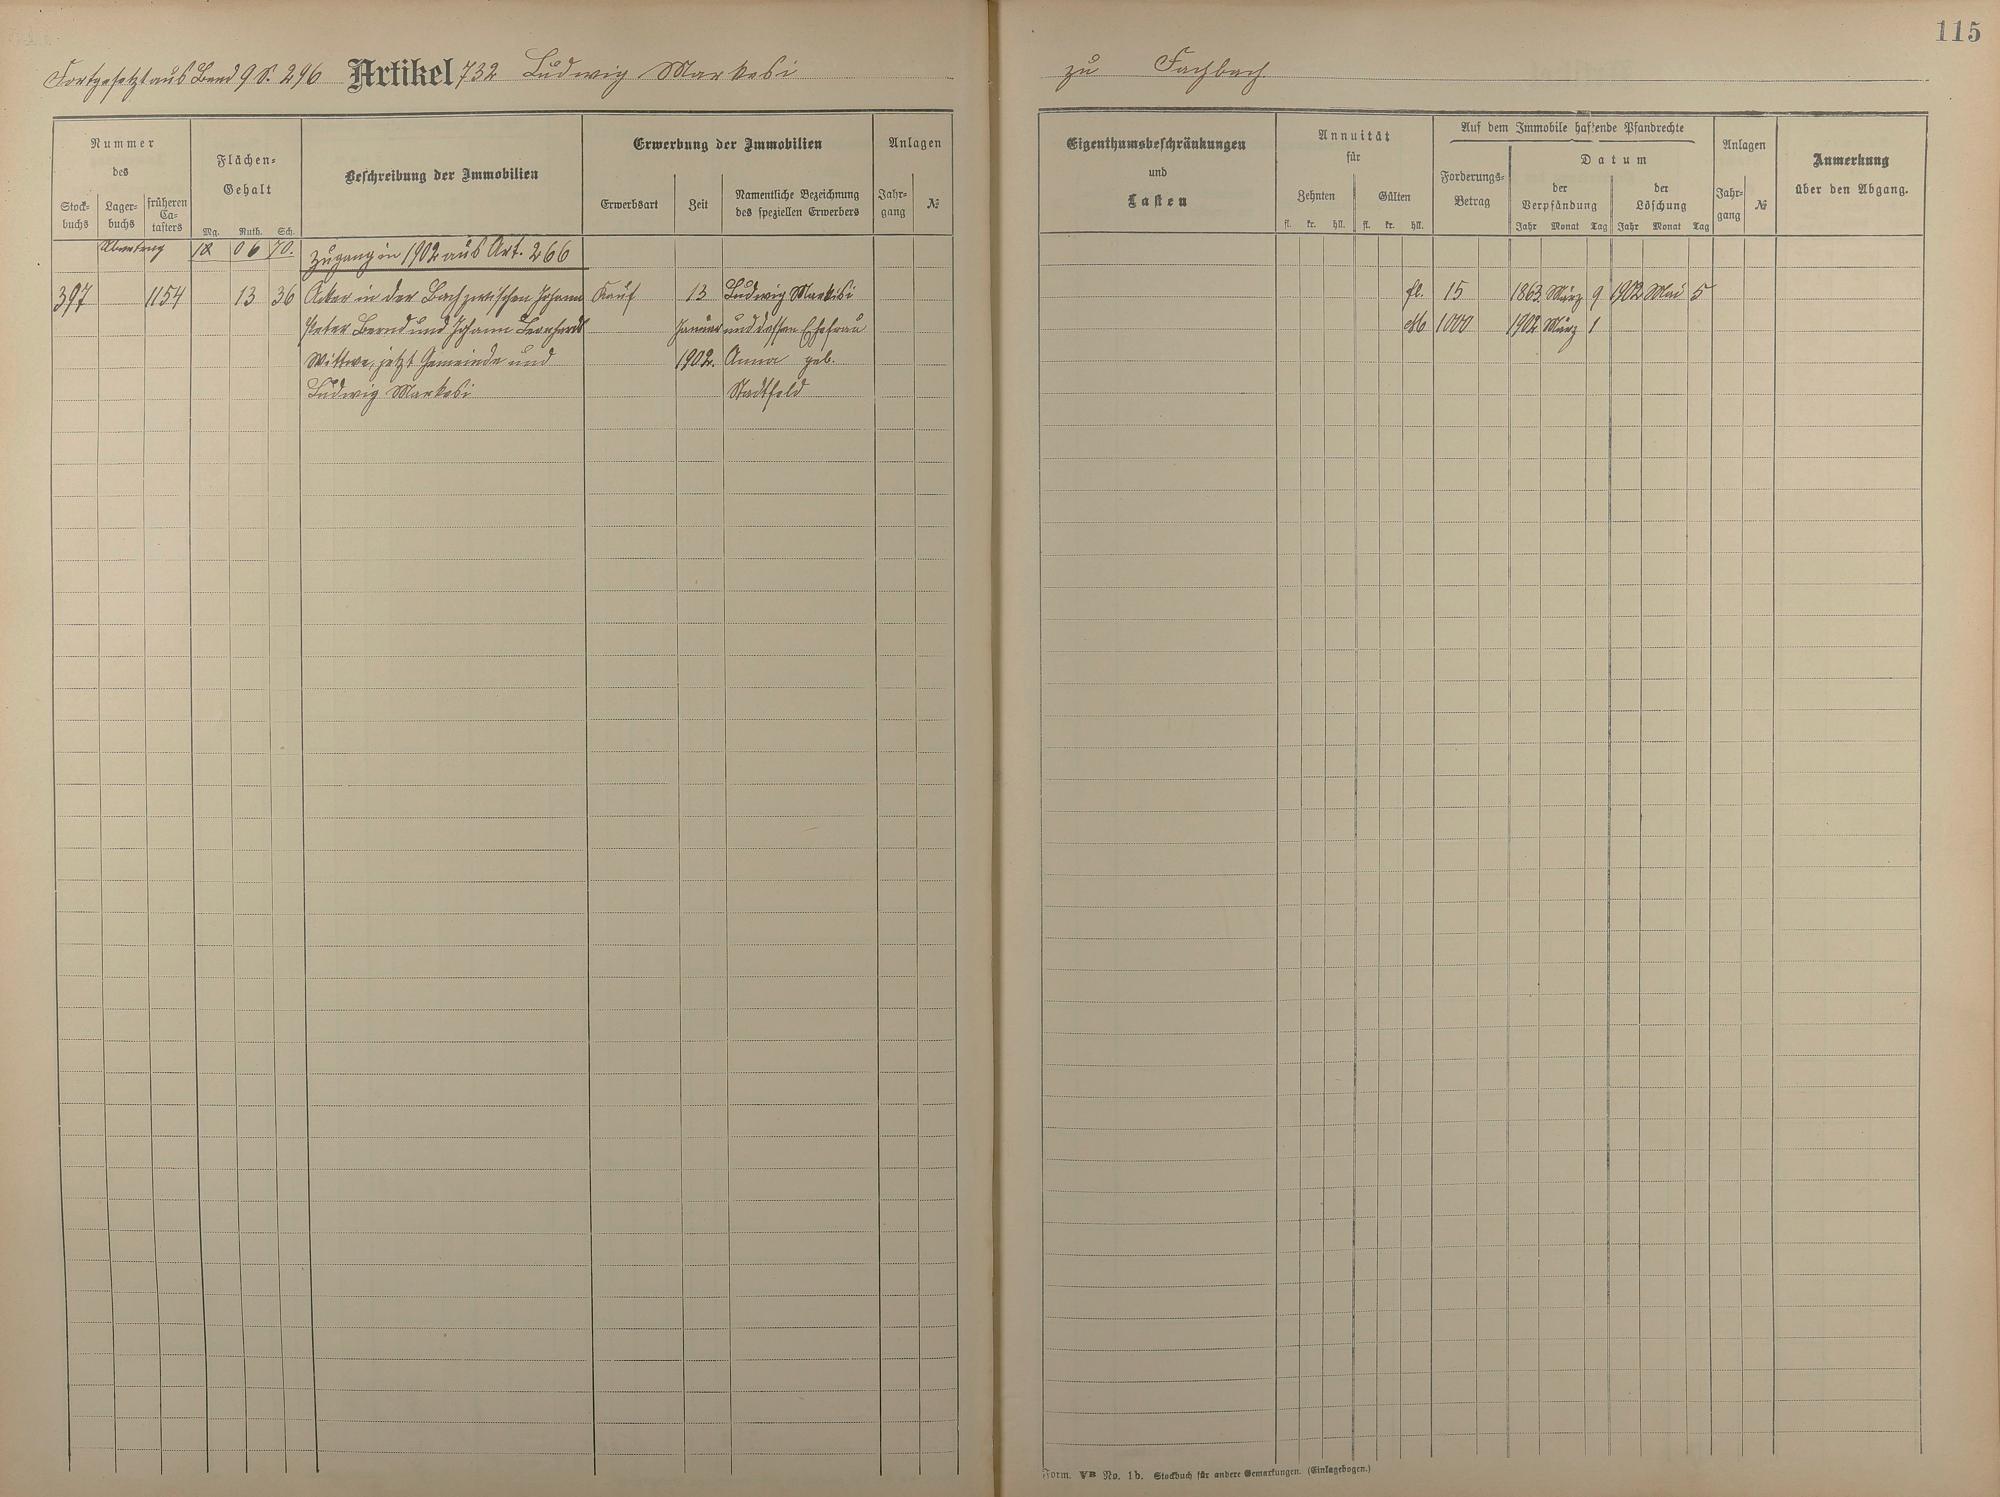 115
Fortgesetzt aus Band 9 S. 296 Artikel 732 Ludwig Markesi zu Fachbach
Nummer
des
Stock-
buchs
Lager-
buchs
früheren
Ca-
tasters
Flächen-
Gehalt
Mg. Ruth. Sch.
Beschreibung der Immobilien
Erwerbung der Immobilien
Erwerbsart
Zeit
Namentliche Bezeichnung
des speziellen Erwerbers
Anlagen
Jahr-
gang
№
Eigenthumsbeschränkungen
und
Lasten
Annuität
für
Zehnten
Gülten
fl. kr. hll. fl. kr. hll.
Auf dem Immobile haftende Pfandrechte
Forderungs-
Betrag
Datum
der
Verpfändung
der
Löschung
Jahr Monat Tag Jahr Monat Tag
Anlagen
Jahr-
gang
№
Anmerkung
über den Abgang.
Übertrag 18 06 70. Zugang in 1902 aus Art. 266
397 1154 13 36 Acker in der Bach zwischen Johann Kauf 13 Ludwig Markesi fl. 15 1863. März 9 1902 Mai 5
Peter Bernd und Johann Leonhards Januar und dessen Ehefrau M 1000 1902 März 1
Wittwe, jetzt Gemeinde und 1902. Anna geb.
Ludwig Markesi Stadtfeld
Form. VB No. 1b. Stockbuch für andere Gemarkungen. (Einlagebogen.)